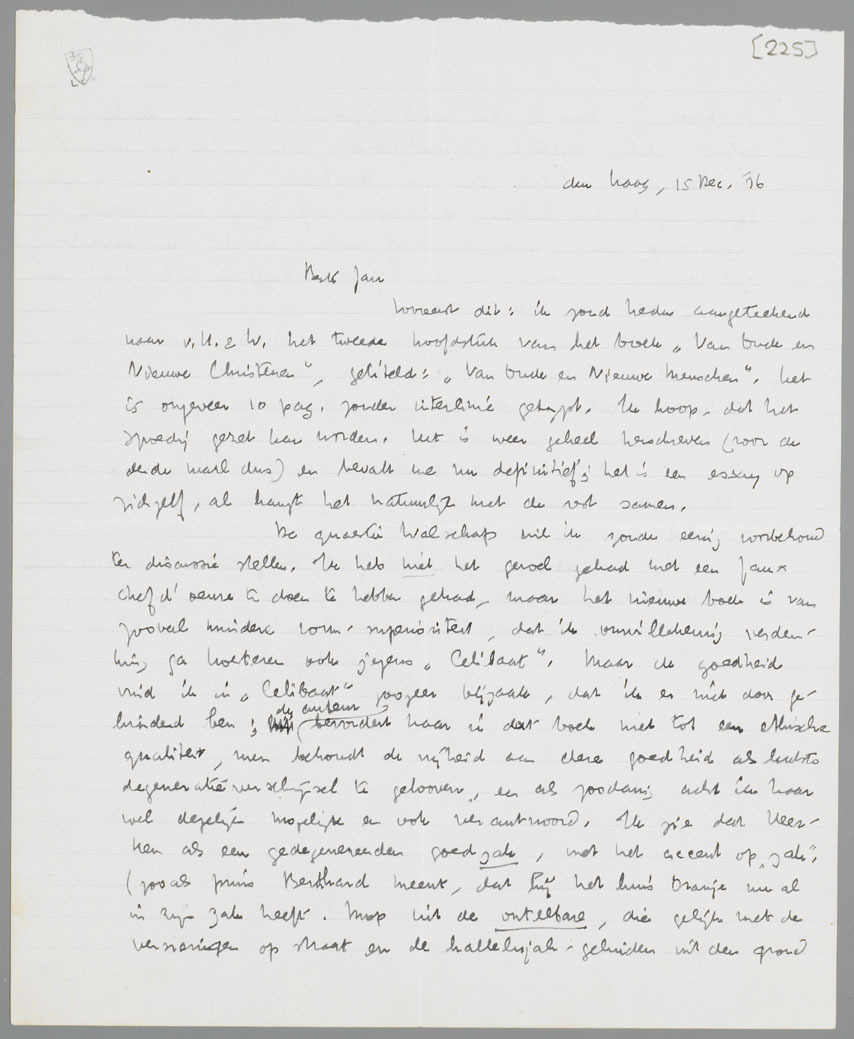 [225]
den Haag, 15 Dec. '36
Beste Jan
Vooreerst dit: ik zond heden aangeteekend
naar v.H. & W. het tweede hoofdstuk van het boek „Van Oude en
Nieuwe Christenen", getiteld: „Van Oude en Nieuwe Menschen". Het
is ongeveer 10 pag. zonder interlinie getypt. Ik hoop, dat het
spoedig gezet kan worden. Het is weer geheel herschreven (voor de
derde maal dus) en bevalt me nu definitief; het is een essay op
zichzelf, al hangt het natuurlijk met de rest samen.
De quaestie Walschap wil ik zonder eenig voorbehoud
ter discussie stellen. Ik heb niet het gevoel gehad met een faux
chef d'oeuvre te doen te hebben gehad, maar het nieuwe boek is van
zooveel mindere vorm-superioriteit, dat ik onwillekeurig verden-
king ga koesteren ook jegens „Celibaat". Maar de goedheid
vind ik in „Celibaat" zoozeer bijzaak, dat ik er niet door ge-
hinderd ben; de auteur
bevordert haar in dat boek niet tot een ethische
qualiteit, men behoudt de vrijheid aan deze goedheid als laatste
degeneratieverschijnsel te gelooven, en als zoodanig acht ik haar
wel degelijk mogelijk en ook verantwoord. Ik zie dat Heer-
ken als een gedegenereerden goedzak, met het accent op „zak".
(zooals prins Bernhard meent, dat hij het huis Oranje nu al
in zijn zak heeft. Mop uit de ontelbare, die gelijk met de
versieringen op straat en de hallelujah-geluiden uit den grond